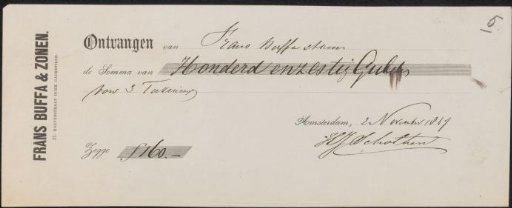 16.
FRANS BUFFA & ZONEN.
Ontvangen van Frans Buffa &
de Somma van Honderd en zestig Guld
voor 3
Amsterdam, 2 November 18
Zegge f 160.-
HJ Scholten